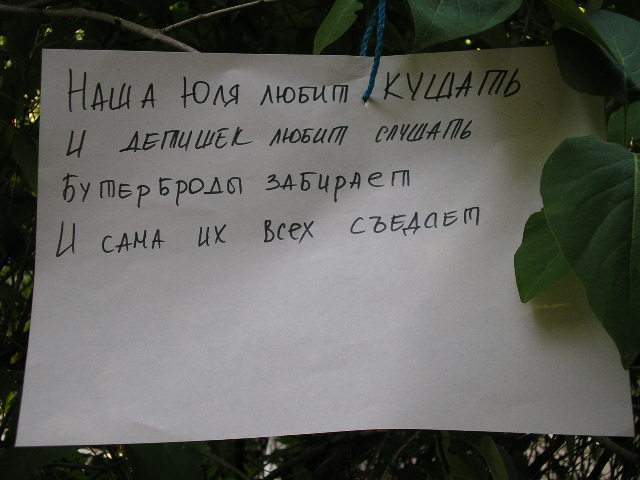 Наша Юля любит кушать
И детишек любит слушать
Бутерброды забирает
И сама их всех съедает